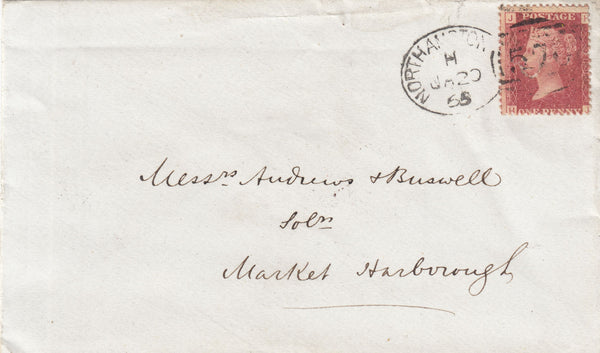 NORTHAMPTON
H
JA 20
POSTAGE
ONE PENNY
Messrs Andrews & Buswell
Solrs
Market Harborough